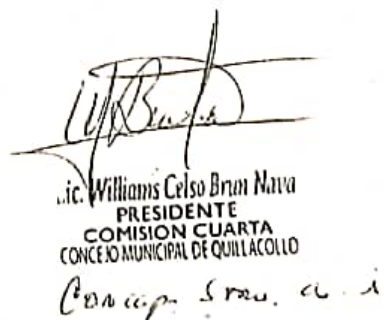 ..ic. Williams Celso Brun Nava
PRESIDENTE
COMISION CUARTA
CONCEJO MUNICIPAL DE QUILLACOLLO